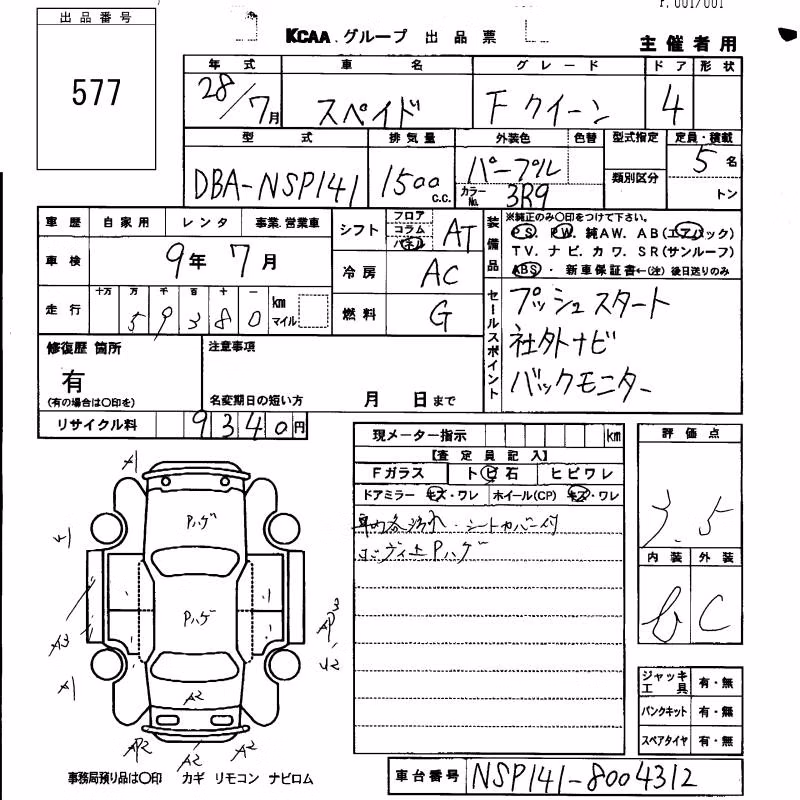 r. 001/001
出品番号
577
KCAA.グループ 出品票
主催者用
年式 車名 グレード ドア 形状
28/7月 スペイド F クイーン 4
型式 排気量 外装色 色替 型式指定 定員・積載
DBA-NSP141 1500 C.C. パープル 5名
カラーNo. 3R9 類別区分 トン
車歴 自家用 レンタ 事業.営業車
車検 9年7月
走行 十万 万 千 百 十 一 km マイル
59380
シフト フロア コラム パネル AT
冷房 AC
燃料 G
装備品
※純正のみ〇印をつけて下さい。
PS. PW. 純AW. AB(エアバック)
TV. ナビ. カワ. SR(サンルーフ)
ABS・新車保証書←(注)後日送りのみ
セールスポイント
プッシュスタート
社外ナビ
バックモニター
修復歴 箇所
有
(有の場合は〇印を)
注意事項
名変期日の短い方 月 日まで
リサイクル料 9340円
現メーター指示 km
【査定員記入】
Fガラス トビ石 ヒビワレ
ドアミラー キズ・ワレ ホイール(CP) キズ・ワレ
車内各汚れ・シートカバー付
ボディ上Pハゲ
評価点
3.5
内装 外装
b C
ジャッキ工具 有・無
パンクキット 有・無
スペアタイヤ 有・無
A1
Pハゲ
A3
Pハゲ
AP3
U2
A1
A2
AP2
A2
A2
事務局預り品は〇印 カギ リモコン ナビロム
車台番号 NSP141-8004312